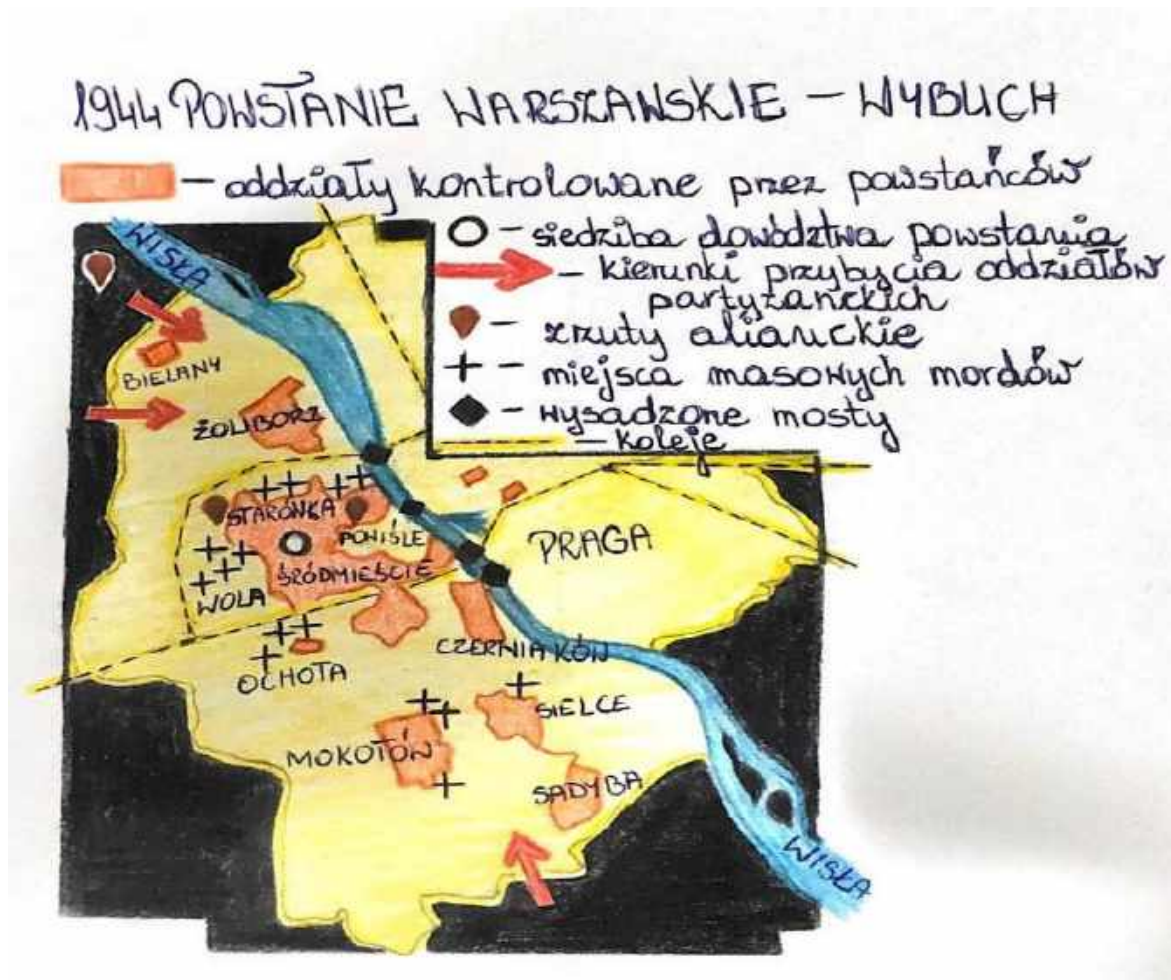 1944 POWSTANIE WARSZAWSKIE - WYBUCH
- oddziały kontrolowane przez powstańców
- siedziba dowództwa powstania
- kierunki przybycia oddziałów
partyzanckich
- zrzuty alianckie
- miejsca masowych mordów
- wysadzone mosty
- koleje
WISŁA
BIELANY
ŻOLIBORZ
STARÓWKA
POWIŚLE
PRAGA
ŚRÓDMIEŚCIE
WOLA
CZERNIAKÓW
OCHOTA
SIELCE
MOKOTÓW
SADYBA
WISŁA